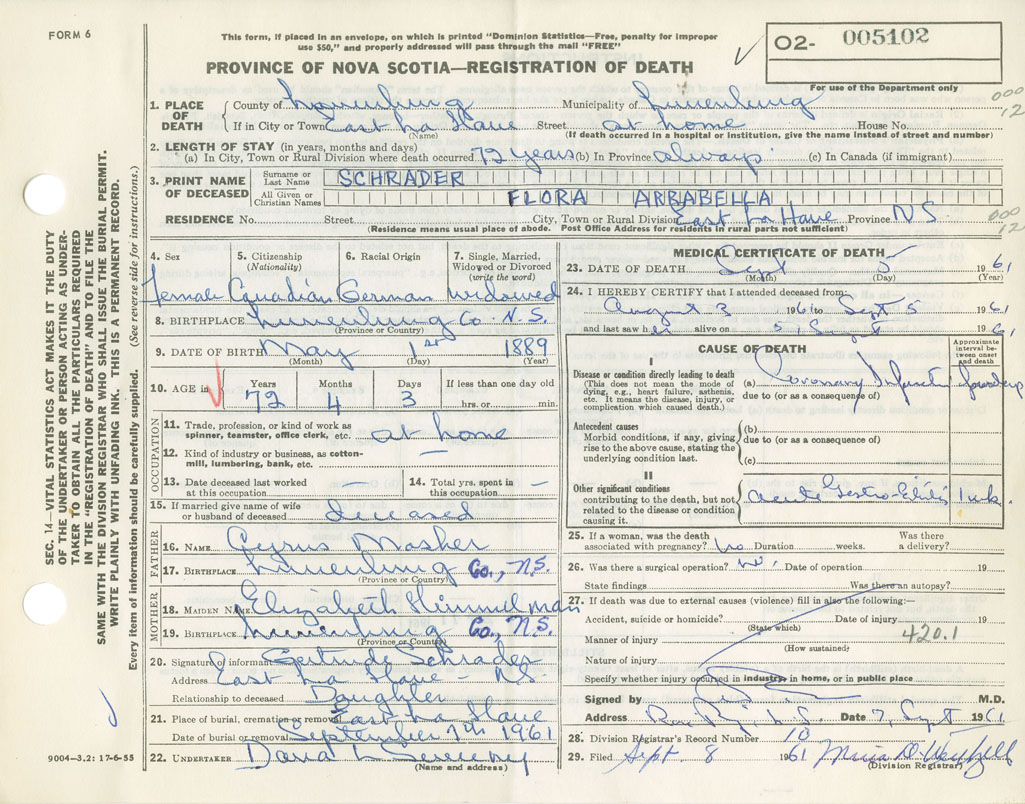 FORM 6
This form, if placed in an envelope, on which is printed "Dominion Statistics—Free, penalty for improper
use $50," and properly addressed will pass through the mail "FREE"
O2- 005102
PROVINCE OF NOVA SCOTIA—REGISTRATION OF DEATH
For use of the Department only
1. PLACE OF DEATH
County of Lunenburg Municipality of Lunenburg
000
12
If in City or Town East La Have Street at home House No.
(Name) (If death occurred in a hospital or institution, give the name instead of street and number)
2. LENGTH OF STAY (in years, months and days)
(a) In City, Town or Rural Division where death occurred 72 years (b) In Province always (c) In Canada (if immigrant)
3. PRINT NAME OF DECEASED
Surname or Last Name SCHRADER
All Given or Christian Names FLORA ARBABELLA
RESIDENCE No. Street City, Town or Rural Division East La Have Province N S
000
12
(Residence means usual place of abode. Post Office Address for residents in rural parts not sufficient)
4. Sex 5. Citizenship (Nationality) 6. Racial Origin 7. Single, Married, Widowed or Divorced (write the word)
female Canadian German widowed
8. BIRTHPLACE Lunenburg Co. N.S.
(Province or Country)
9. DATE OF BIRTH May 1st 1889
(Month) (Day) (Year)
10. AGE in Years Months Days If less than one day old
72 4 3 hrs. or min.
OCCUPATION
11. Trade, profession, or kind of work as
spinner, teamster, office clerk, etc. at home
12. Kind of industry or business, as cotton-
mill, lumbering, bank, etc. —
13. Date deceased last worked
at this occupation —
14. Total yrs. spent in
this occupation —
15. If married give name of wife
or husband of deceased deceased
FATHER
16. NAME Cyrus Mosher
17. BIRTHPLACE Lunenburg Co., N.S.
(Province or Country)
MOTHER
18. MAIDEN NAME Elizabeth Himmelman
19. BIRTHPLACE Lunenburg Co., N.S.
(Province or Country)
20. Signature of informant Gertrude Schrader
Address East La Have - N.S.
Relationship to deceased Daughter
21. Place of burial, cremation or removal East La Have
Date of burial or removal September 7th 1961
22. UNDERTAKER David L Sweeny
(Name and address)
MEDICAL CERTIFICATE OF DEATH
23. DATE OF DEATH Sept 5 1961
(Month) (Day) (Year)
24. I HEREBY CERTIFY that I attended deceased from:
August 3 1961 to Sept 5 1961
and last saw her alive on 5, Sept 1961
CAUSE OF DEATH
Approximate interval between onset and death
I
Disease or condition directly leading to death
(This does not mean the mode of
dying, e.g., heart failure, asthenia,
etc. It means the disease, injury, or
complication which caused death.)
(a) Coronary Infarct
due to (or as a consequence of)
Antecedent causes
Morbid conditions, if any, giving
rise to the above cause, stating the
underlying condition last.
(b)
due to (or as a consequence of)
(c)
II
Other significant conditions
contributing to the death, but not
related to the disease or condition
causing it.
acute 1 wk.
25. If a woman, was the death
associated with pregnancy? No Duration weeks. Was there
a delivery?
26. Was there a surgical operation? No. Date of operation 19
State findings Was there an autopsy?
27. If death was due to external causes (violence) fill in also the following:—
Accident, suicide or homicide? Date of injury 19
(State which)
420.1
Manner of injury
(How sustained)
Nature of injury
Specify whether injury occurred in industry, in home, or in public place
Signed by M.D.
Address N.S. Date 7, Sept 1961
28. Division Registrar's Record Number 10
29. Filed Sept. 8 1961
(Division Registrar)
SEC. 14—VITAL STATISTICS ACT MAKES IT THE DUTY
OF THE UNDERTAKER OR PERSON ACTING AS UNDER-
TAKER TO OBTAIN ALL THE PARTICULARS REQUIRED
IN THE "REGISTRATION OF DEATH" AND TO FILE THE
SAME WITH THE DIVISION REGISTRAR WHO SHALL ISSUE THE BURIAL PERMIT.
WRITE PLAINLY WITH UNFADING INK. THIS IS A PERMANENT RECORD.
Every item of information should be carefully supplied. (See reverse side for instructions.)
9004-3.2: 17-6-55